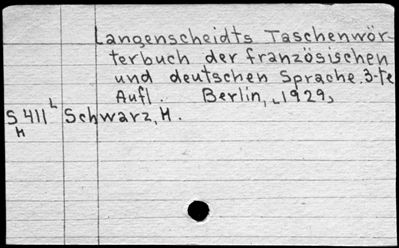 Langenscheidts Taschenwör-
terbuch der französischen
und deutschen Sprache. 3-te
Aufl. Berlin, [1929]
S 411 L Schwarz, H.
H